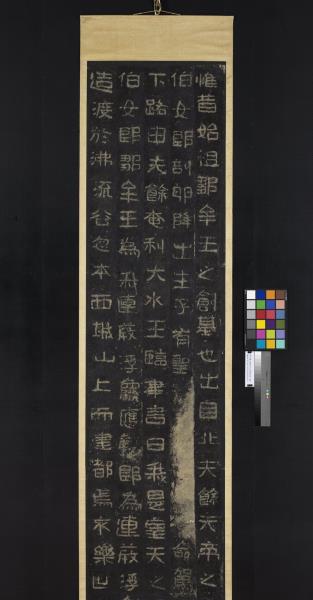 惟昔始祖鄒牟王之創基也出自北夫餘天帝之
伯女郎剖卵降世生子有聖命駕
下路由夫餘奄利大水王臨津言曰我是皇天之
伯女郎鄒牟王為我連葭浮龜應聲即為連葭浮
造渡於沸流谷忽本西城山上而建都焉不樂世